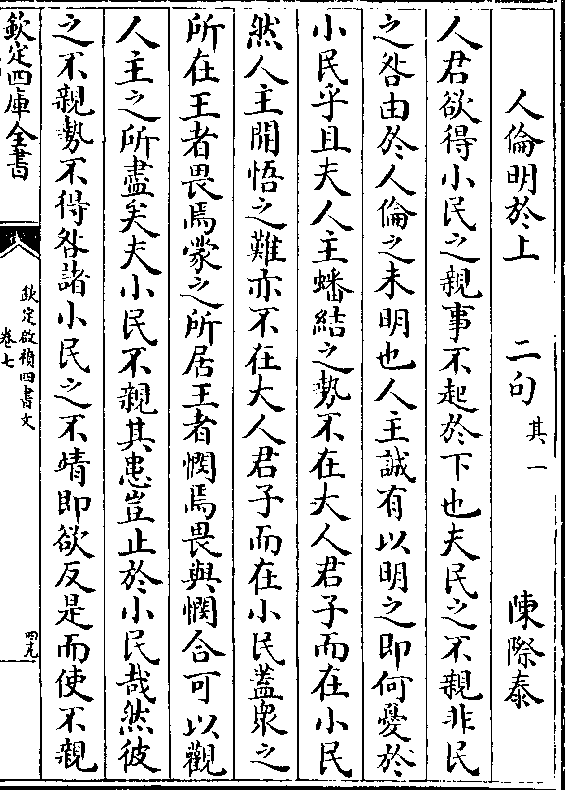 人倫明於上　二句其一　陳際泰
人君欲得小民之親事不起於下也夫民之不親非民
之咎由於人倫之未明也人主誠有以明之即何憂於
小民乎且夫人主蟠結之勢不在大人君子而在小民
然人主開悟之難亦不在大人君子而在小民蓋衆之
所在王者畏焉蒙之所居王者憫焉畏與憫合可以觀
人主之所盡矣夫小民不親其患豈止於小民哉然彼
之不親勢不得咎諸小民之不靖即欲反是而使不親
欽定四庫全書
欽定啟禎四書文
卷七
四九